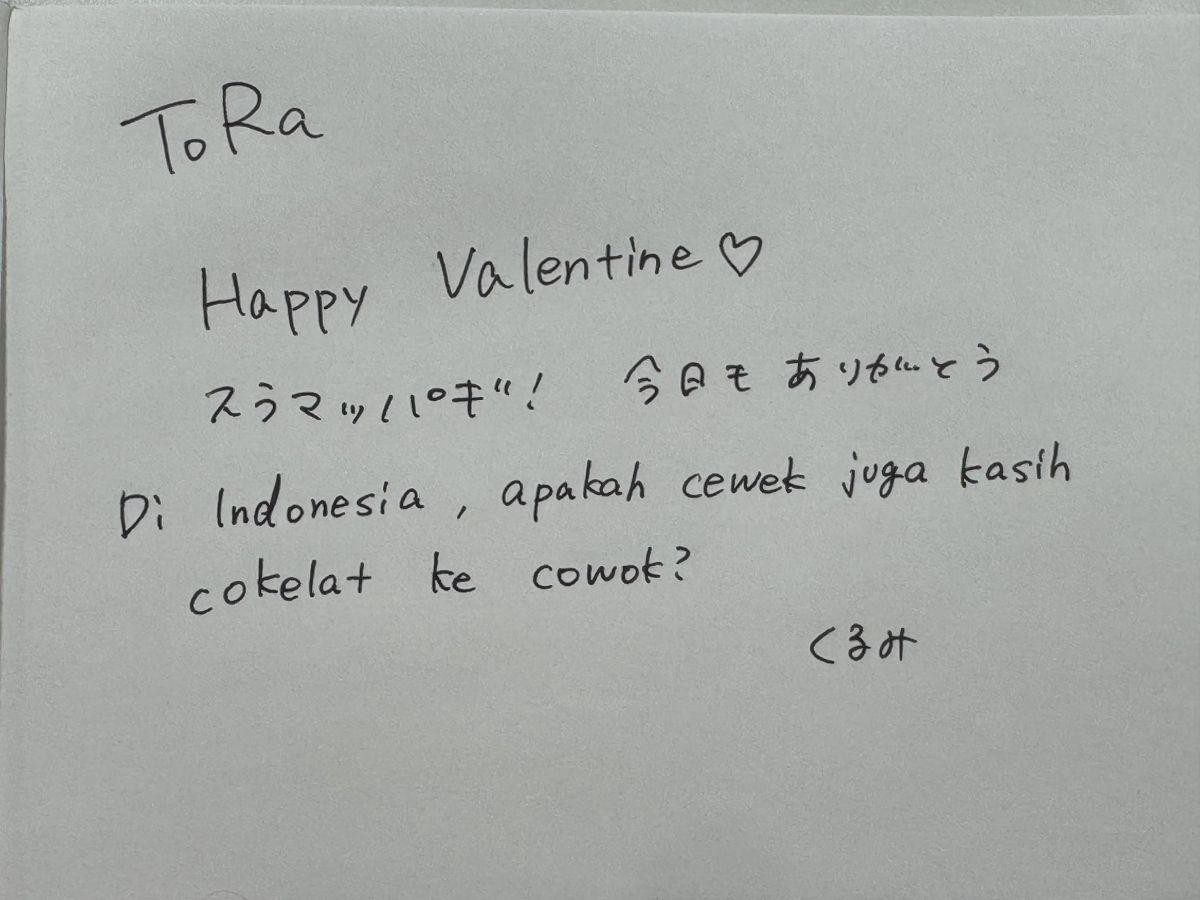 ToRa
Happy Valentine♡
スラマッパギ! 今日もありがとう
Di Indonesia, apakah cewek juga kasih
cokelat ke cowok?
くるみ